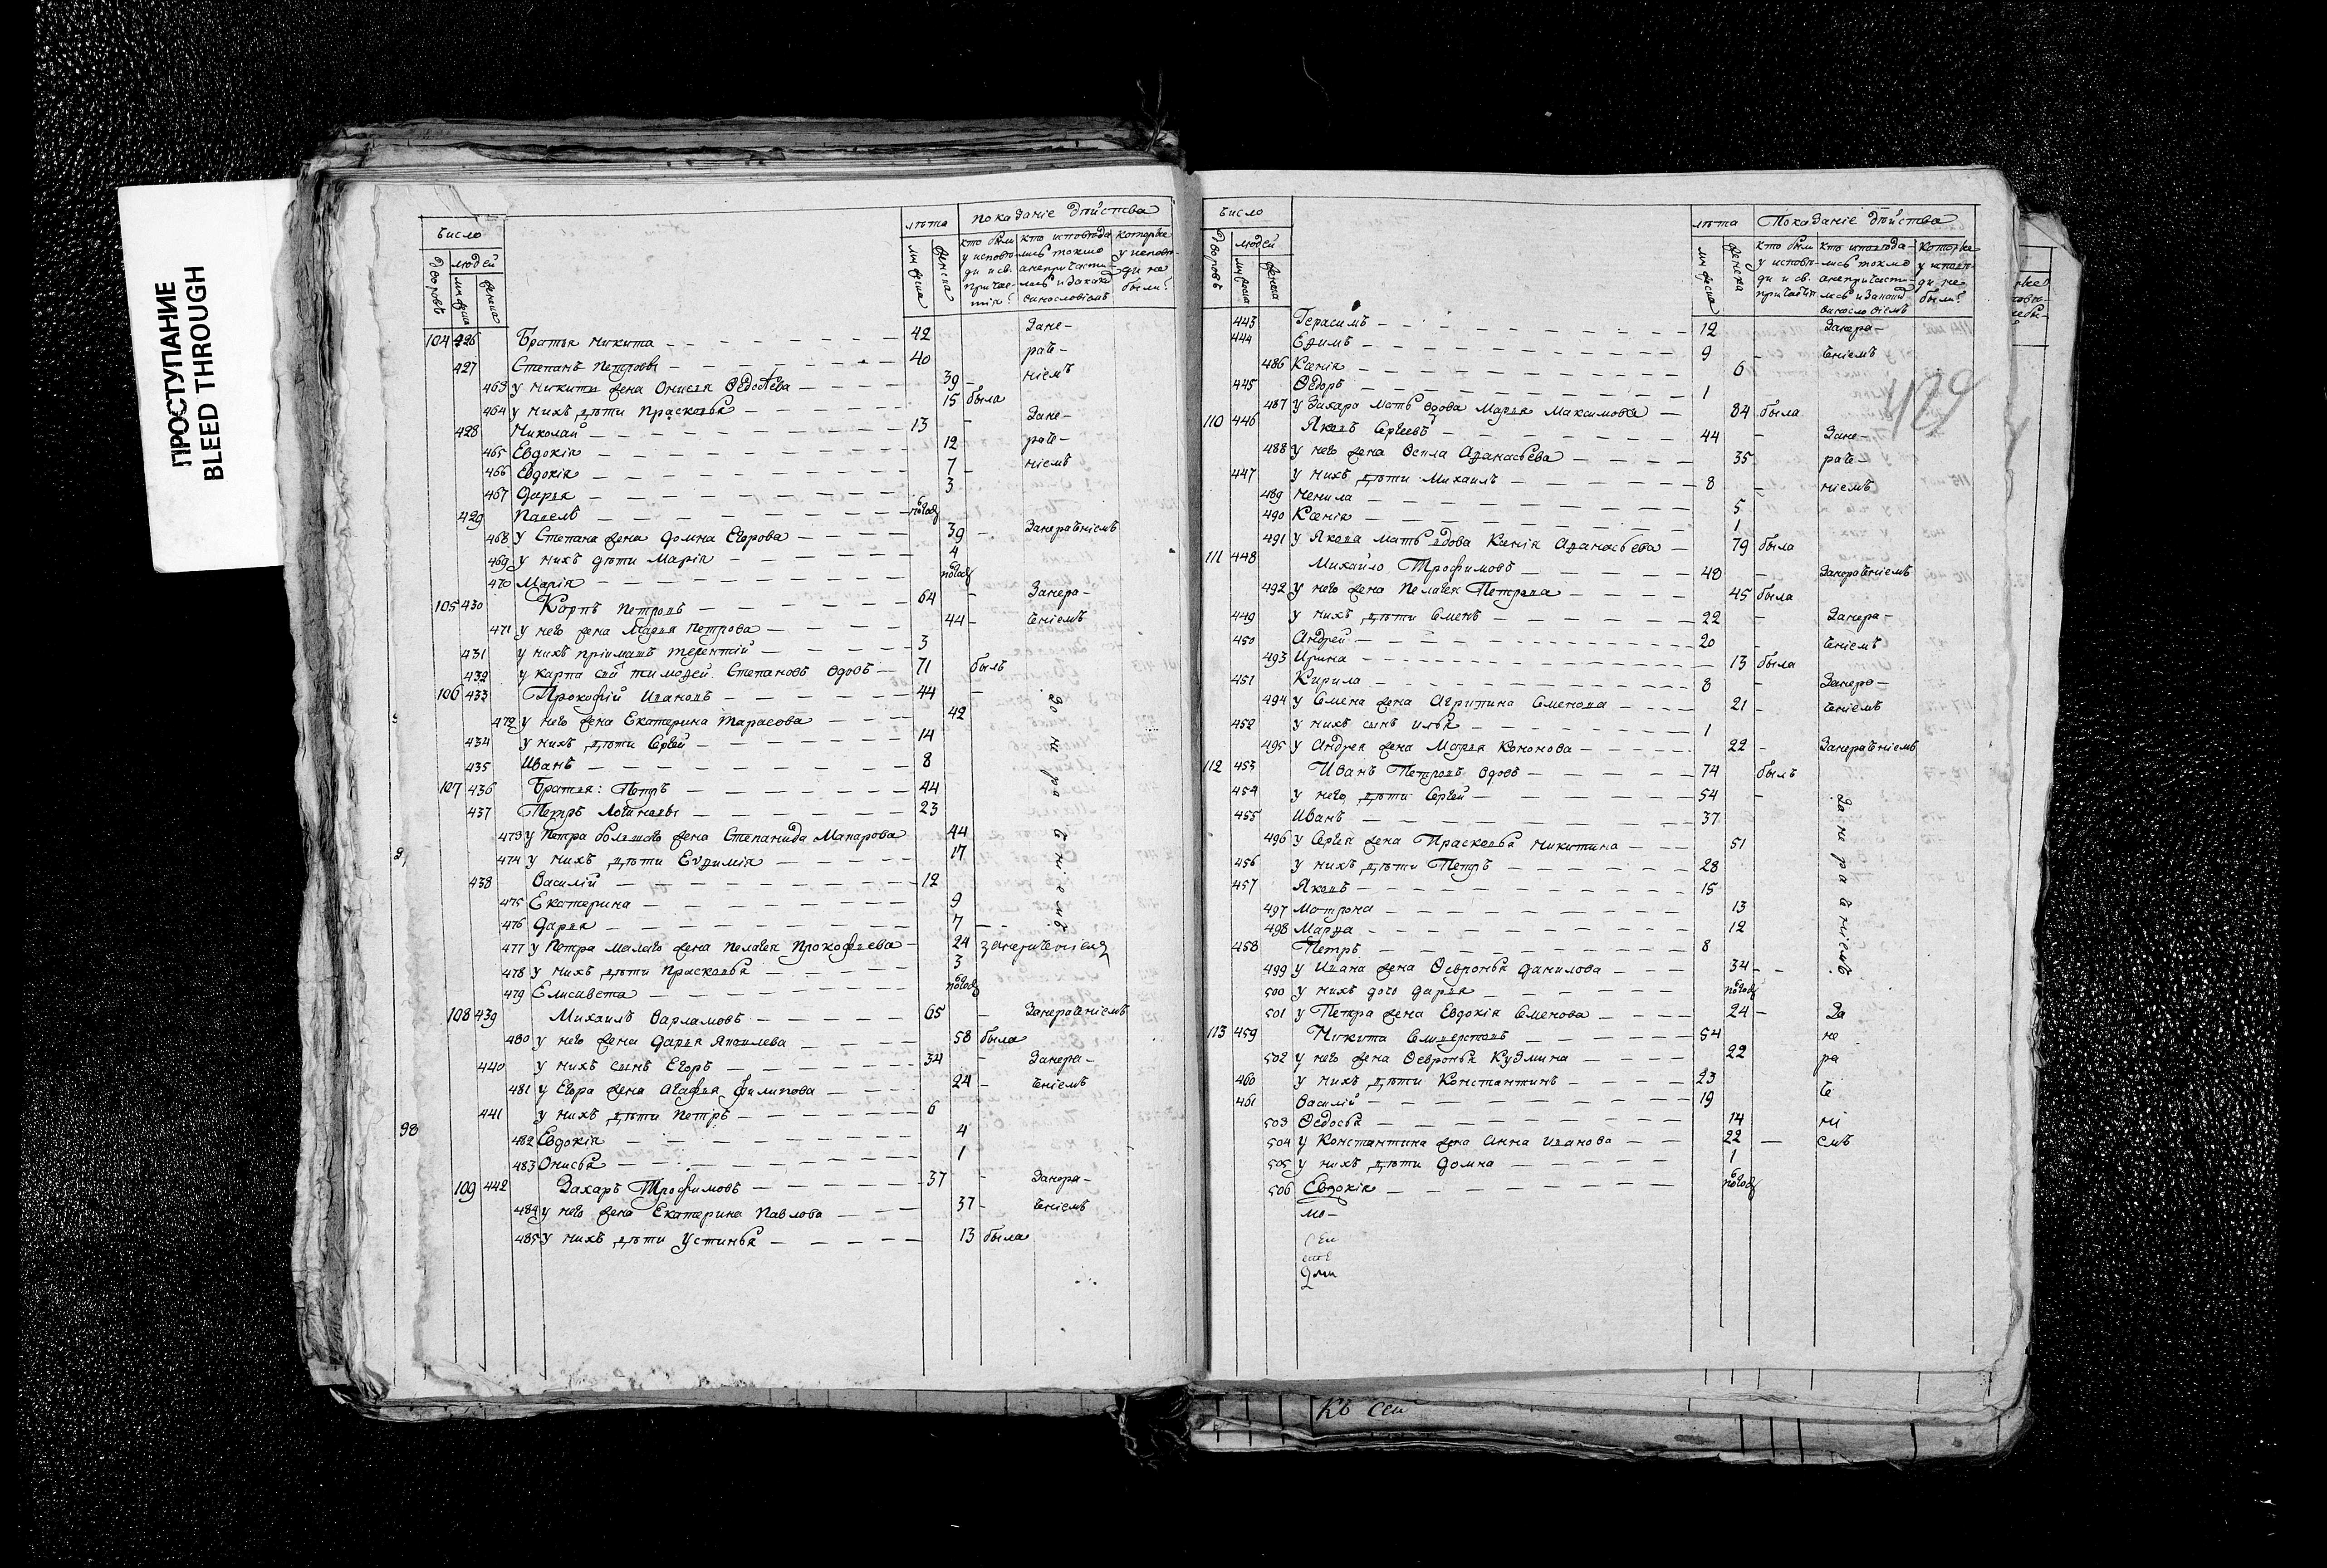 ПРОСТУПАНИЕ
BLEED THROUGH
число
лѣта
показаніе дѣйства
дворовъ
людей
кто были у исповѣди и св. причастія?
которые у исповѣди не были?
104 426 Братья Никита 42 Зане-
427 Степанъ Петровы 40 раче-
463 у Никиты жена Онисья Федосѣева 39 - ніемъ
464 у нихъ дѣти Прасковья 15 была
428 Николай 13 - Зане-
465 Евдокія 12 раче-
466 Евдокія 7 - ніемъ
467 Дарья 3
429 Павелъ полгод
468 у Степана жена Домна Егорова 39 - Занераченіемъ
469 у нихъ дѣти Марія 4
470 Марія полгод
105 430 Карпъ Петровъ 64 - Занера-
471 у него жена Марья Петрова 44 - ченіемъ
431 у нихъ пріимашъ Терентій 3
432 у Карпа Тимофей Степановъ вдовъ 71 былъ
106 433 Прокофій Ивановъ 44 -
472 у него жена Екатерина Тарасова 42
434 у нихъ дѣти Сергей 14
435 Иванъ 8
107 436 Братья: Петръ 44
437 Петръ Логиновы 23
473 у Петра большего жена Степанида Макарова 44
474 у нихъ дѣти Евфимія 17
438 Василій 12
475 Екатерина 9
476 Дарья 7
477 у Петра малаго жена Пелагея Прокофьева 24
478 у нихъ дѣти Прасковья 3
479 Елисавета полгод
108 439 Михаилъ Варламовъ 65 - Занераченіемъ
480 у него жена Дарья Яковлева 58 была
440 у нихъ сынъ Егоръ 34 - Занера-
481 у Егора жена Агафья Филипова 24 - ченіемъ
441 у нихъ дѣти Петръ 6
98
482 Евдокія 4
483 Онисья 1
109 442 Захаръ Трофимовъ 37 - Занера-
484 у него жена Екатерина Павлова 37 - ченіемъ
485 у нихъ дѣти Устинья 13 была
число
лѣта
Показаніе дѣйства
дворовъ
людей
443 Герасимъ 12 Занера-
444 Ефимъ 9 - ченіемъ
486 Ксенія 6
445 Федоръ 1
487 у Захара мать вдова Марья Максимова 84 была
110 446 Яковъ Сергеевъ 44 - Зане-
488 у него жена Фекла Афанасьева 35 раче-
447 у нихъ дѣти Михаилъ 8 - ніемъ
489 Ненила 5
490 Ксенія 1
491 у Якова мать вдова Ксенія Афанасьева 79 была
111 448 Михайло Трофимовъ 48 - Занераченіемъ
492 у него жена Пелагея Петрова 45 была
449 у нихъ дѣти Семенъ 22 - Занера-
450 Андрей 20 - ченіемъ
493 Ирина 13 была
451 Кирила 8 - Занера-
494 у Семена жена Агрипина Семенова 21 - ченіемъ
452 у нихъ сынъ Илья 1
495 у Андрея жена Марья Кононова 22 - Занераченіемъ
112 453 Иванъ Петровъ вдовъ 74 былъ
454 у него дѣти Сергей 54 -
455 Иванъ 37
496 у Сергея жена Прасковья Никитина 51
456 у нихъ дѣти Петръ 28
457 Яковъ 15
497 Матрона 13
498 Марфа 12
458 Петръ 8
499 у Ивана жена Февронья Данилова 34
500 у нихъ дочь Дарья полгод
501 у Петра жена Евдокія Семенова 24 - За
113 459 Никита Селиверстовъ 54 не
502 у него жена Февронья Кузмина 22 ра
460 у нихъ дѣти Константинъ 23 че
461 Василій 19
503 Федосья 14 ні
504 у Константина жена Анна Иванова 22 - емъ
505 у нихъ дѣти Домна 1
506 Евдокія полгод
Къ